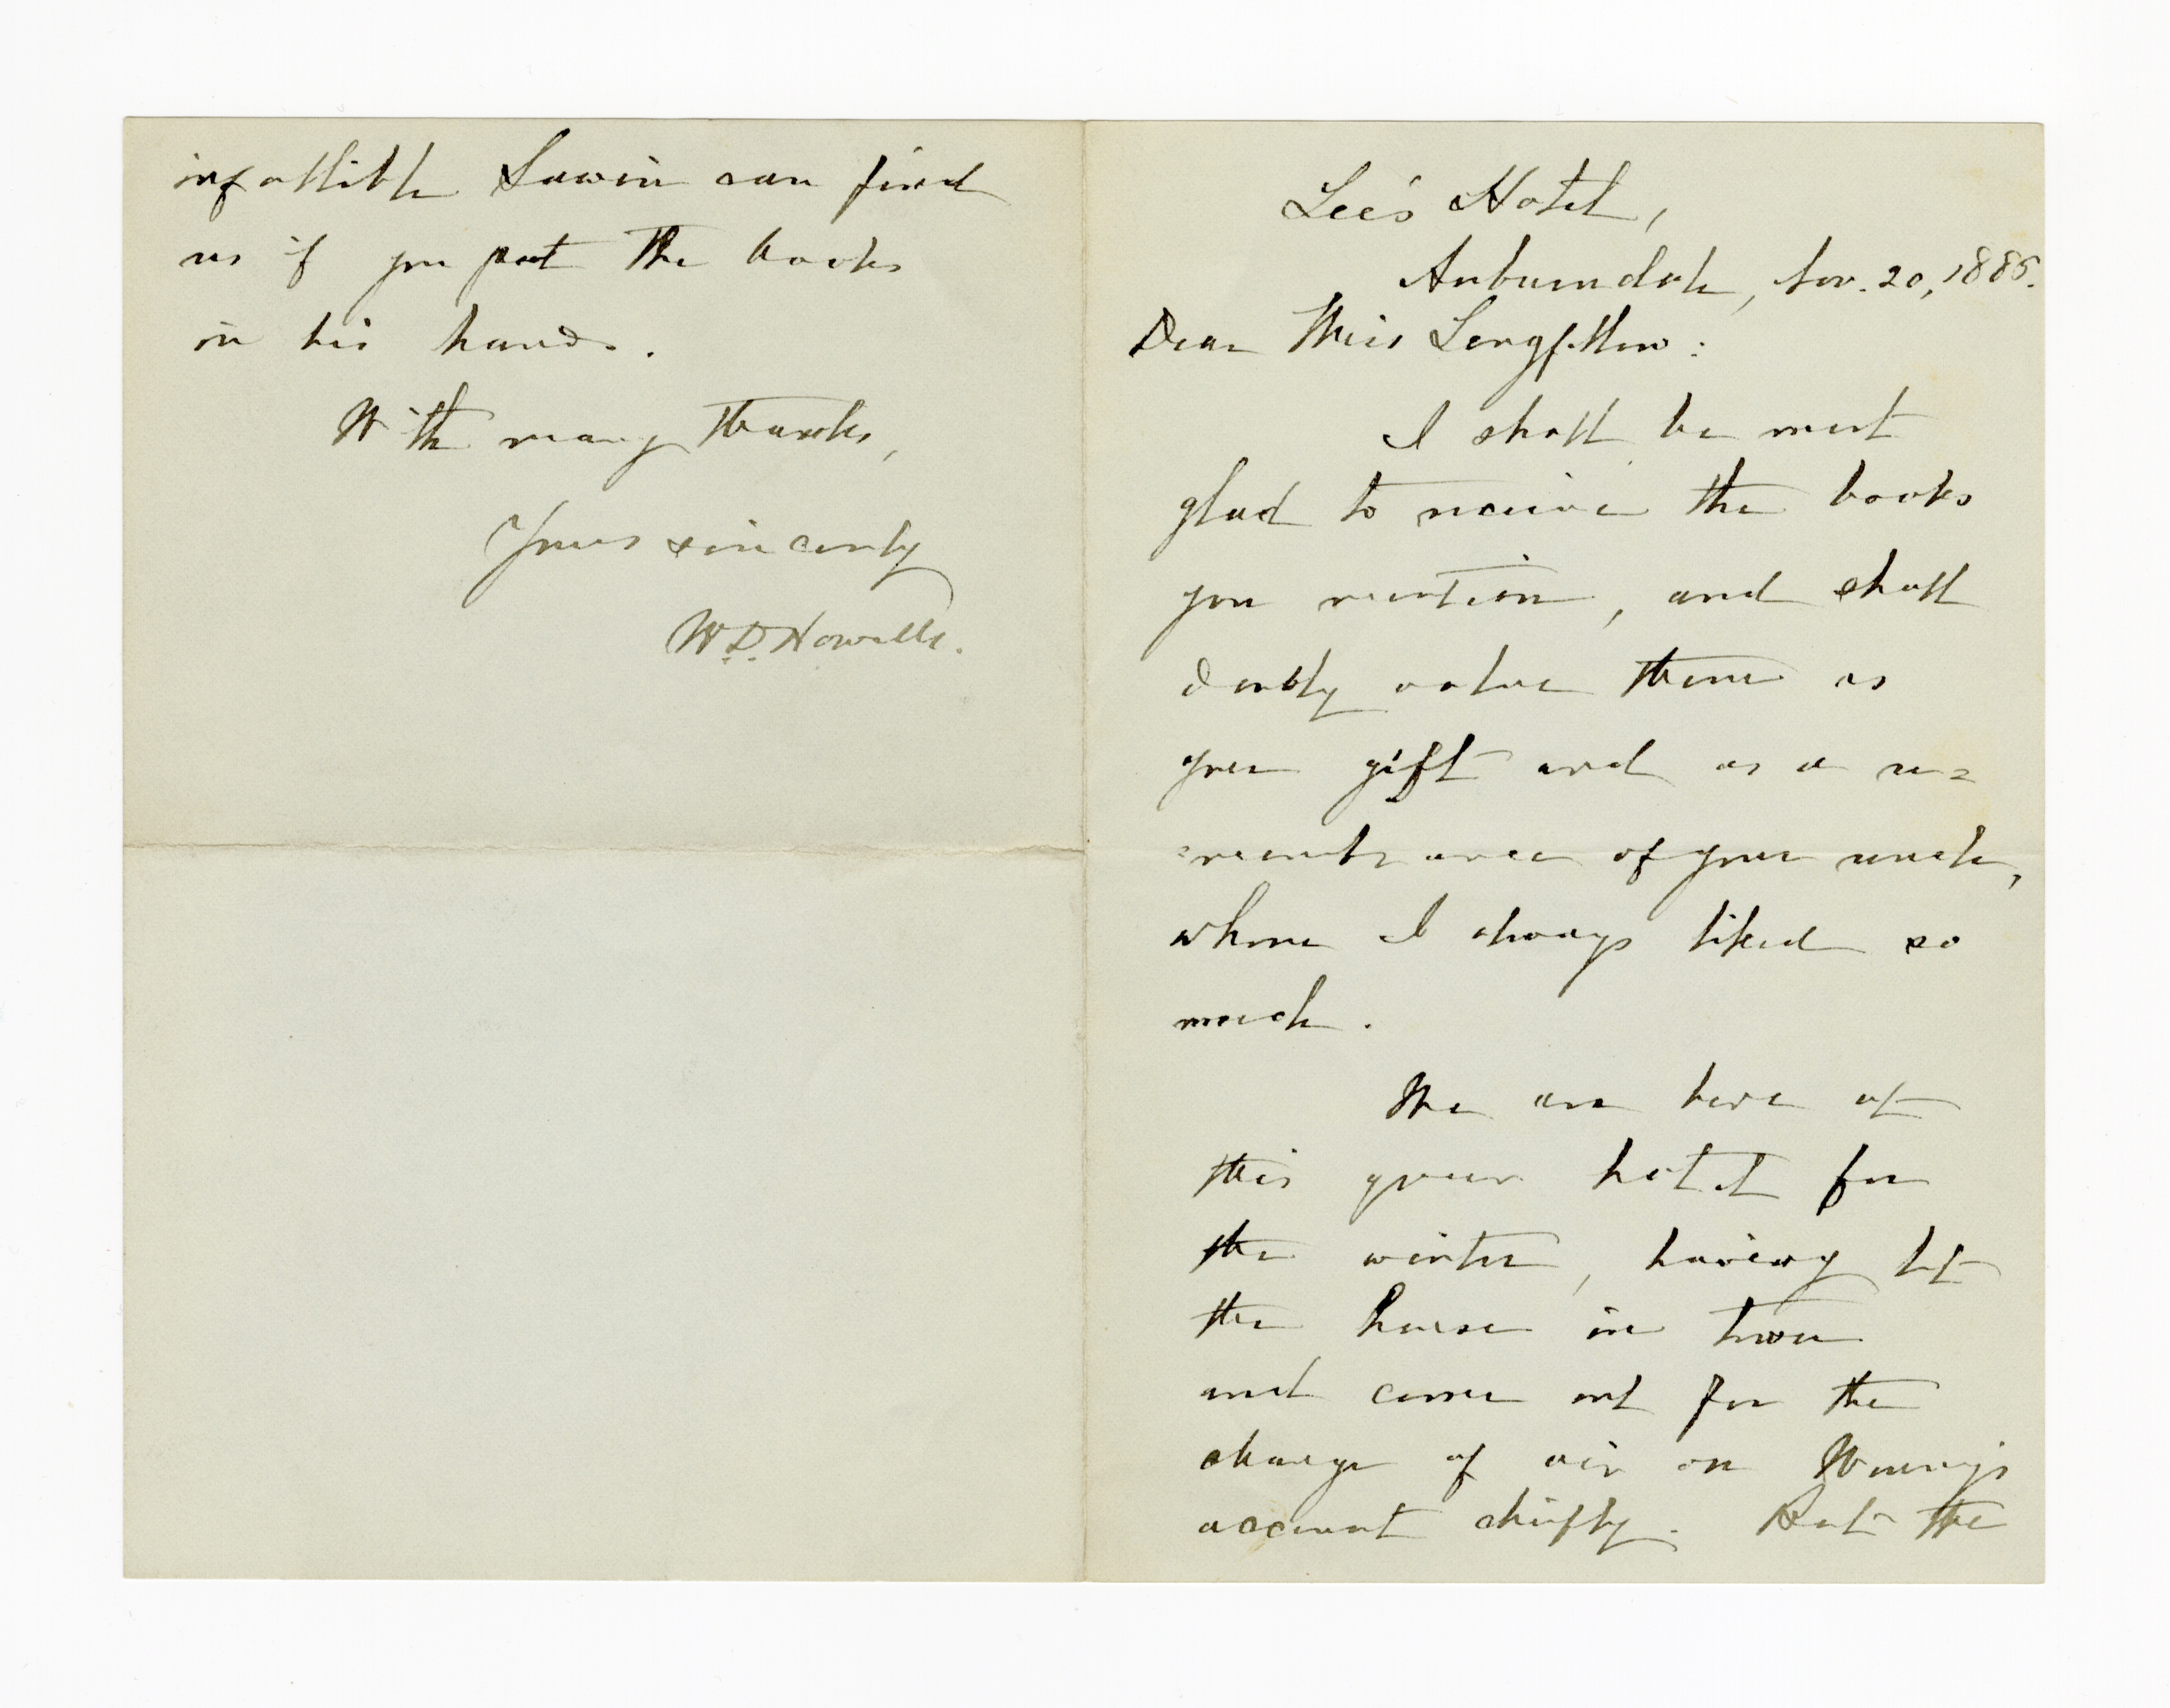 Lee's Hotel,
Auburndale, Nov. 20, 1886.
Dear Miss Longfellow:
I shall be most
glad to receive the books
you mention, and shall
doubly value them as
your gift and as a re=
=membrance of your uncle,
whom I always liked so
much.
We are here at
this queer hotel for
the winter, having left
the house in town
and come out for the
change of air on Winny's
account chiefly. But the
infallible Sawin can find
us if you put the books
in his hands.
With many thanks,
Yours sincerely
W.D. Howells.